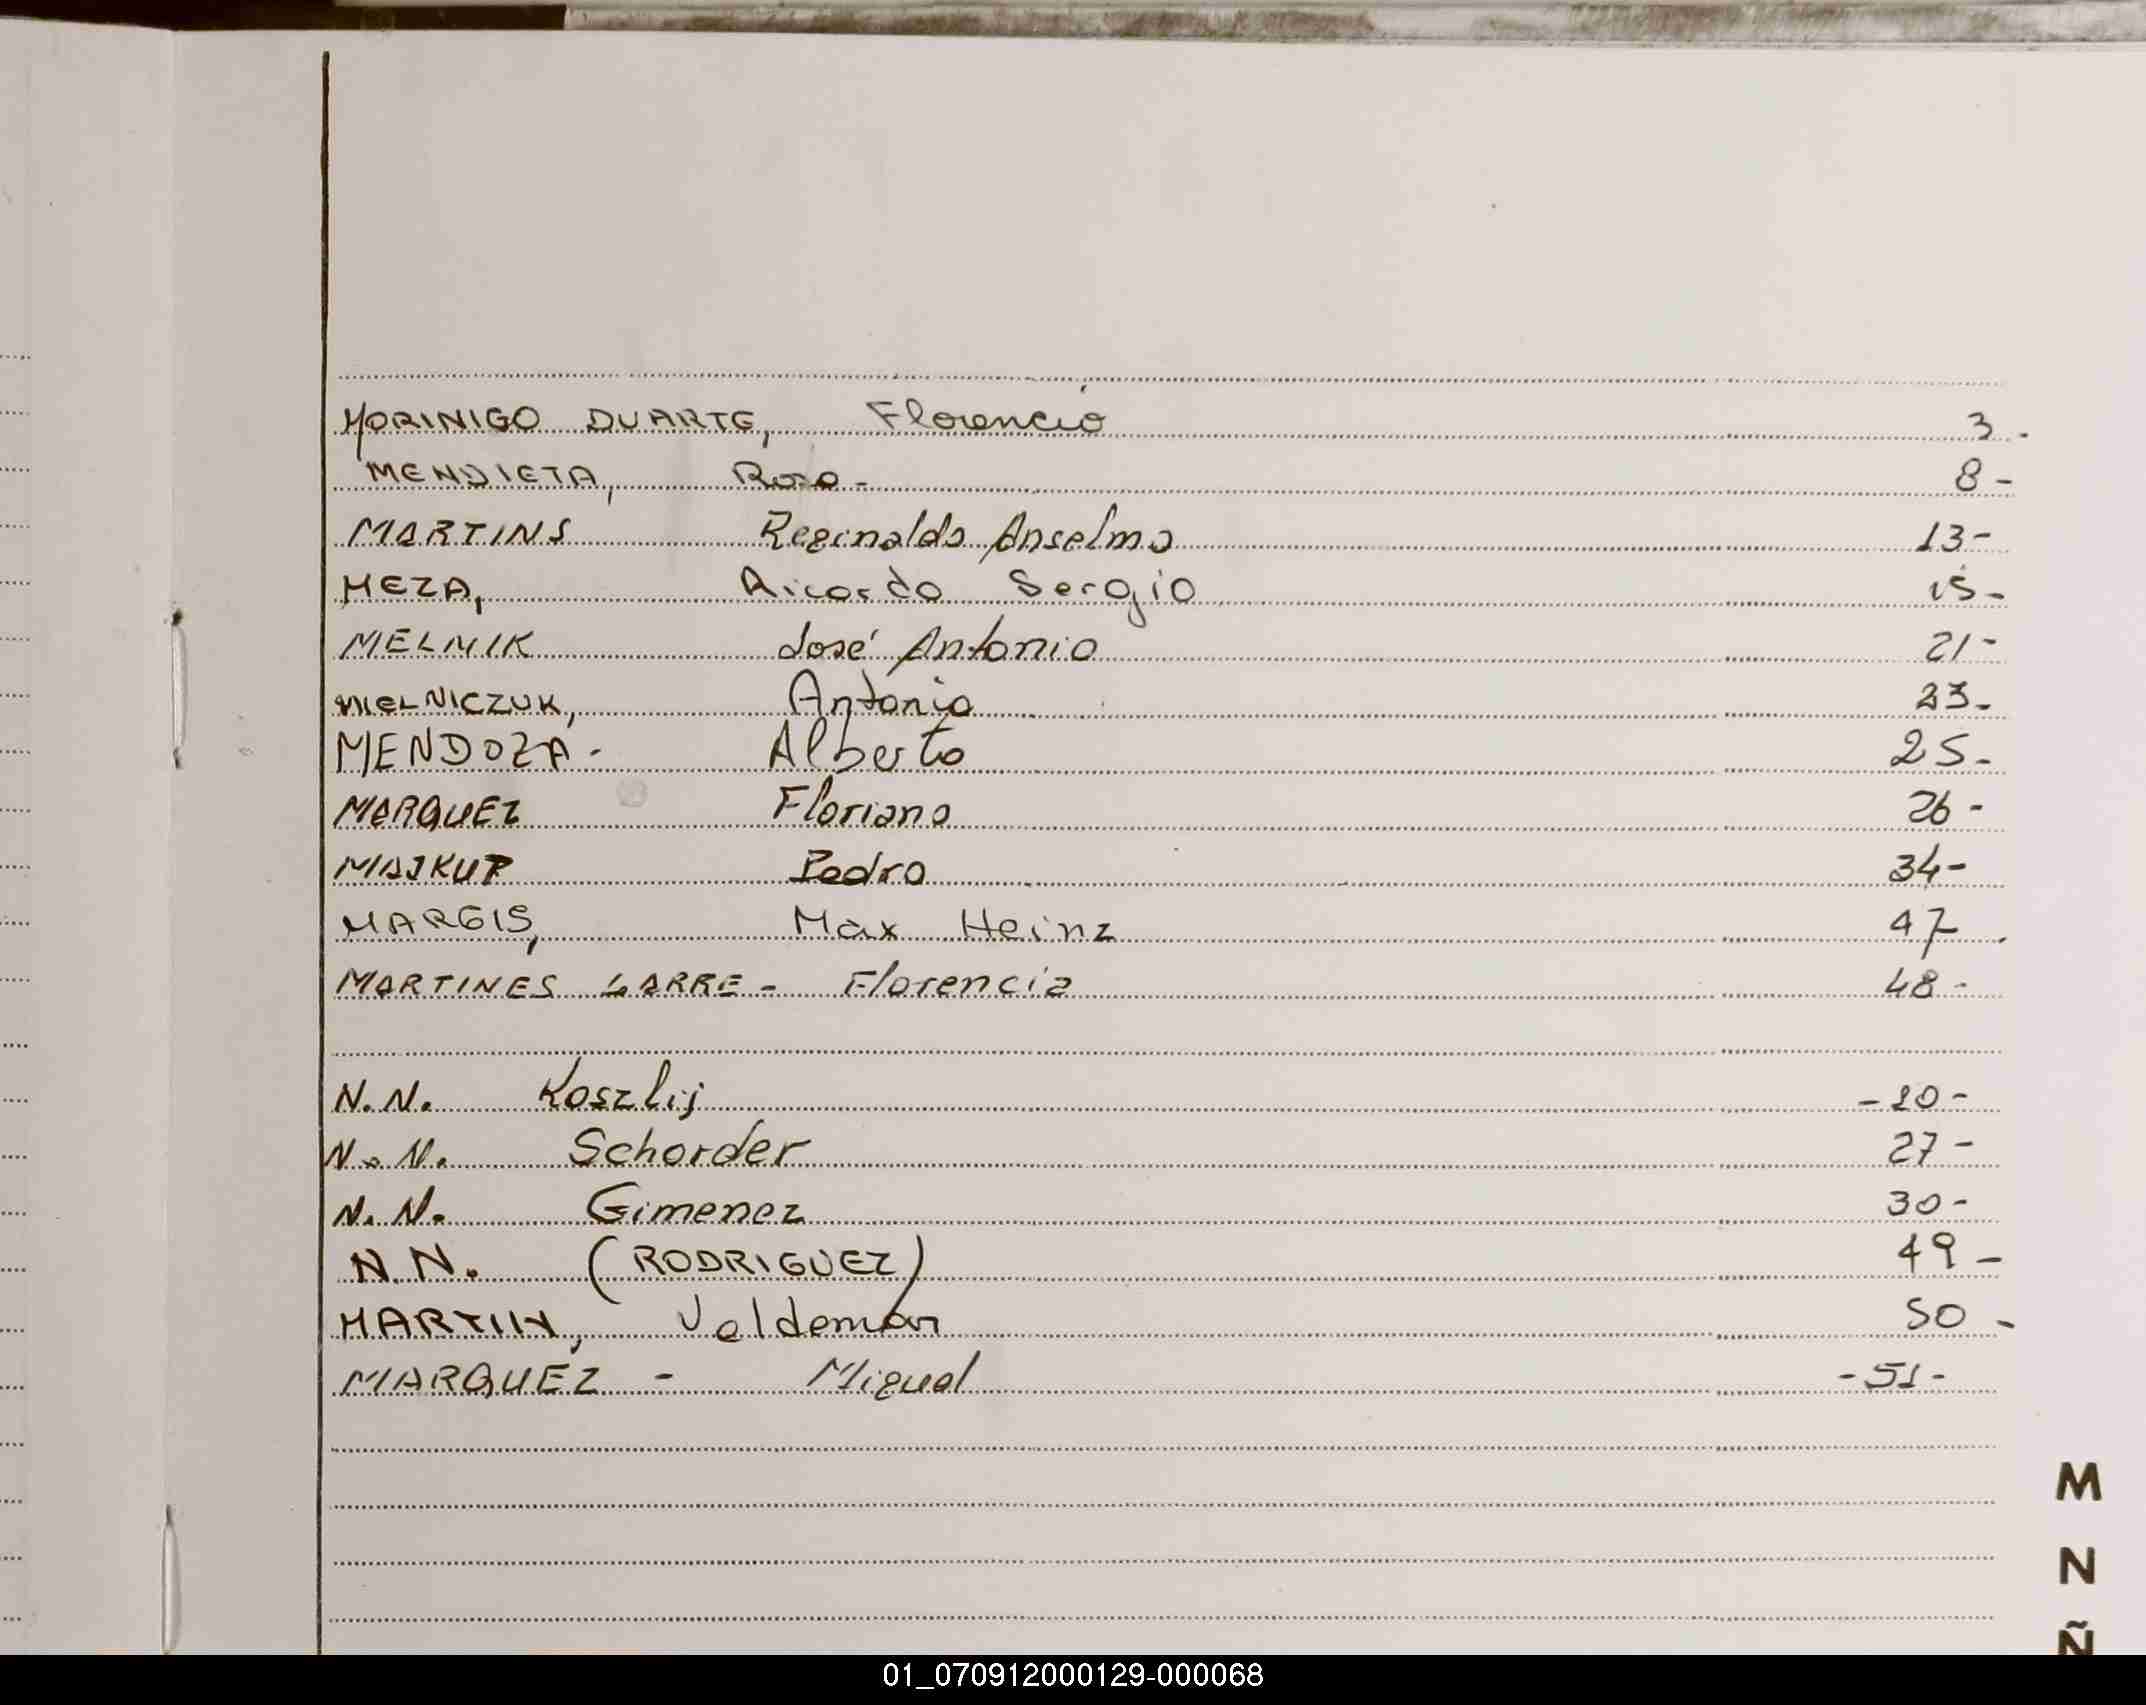 MORINIGO DUARTE, Florencio 3-
MENDIETA, Rosa - 8-
MARTINS Reginaldo Anselmo 13-
MEZA, Ricardo Sergio 15-
MELNIK José Antonio 21-
MELNICZUK, Antonio 23-
MENDOZA - Alberto 25-
MARQUEZ Floriano 26-
MAJKUP Pedro 34-
MARGIS, Max Heinz 47-
MARTINES LARRE - Florencia 48-
N.N. Koszlij -20-
N.N. Schorder 27-
N.N. Gimenez 30-
N.N. (RODRIGUEZ) 49-
MARTIN, Valdemar 50-
MARQUEZ - Miguel -51-
M
N
Ñ
01_070912000129-000068